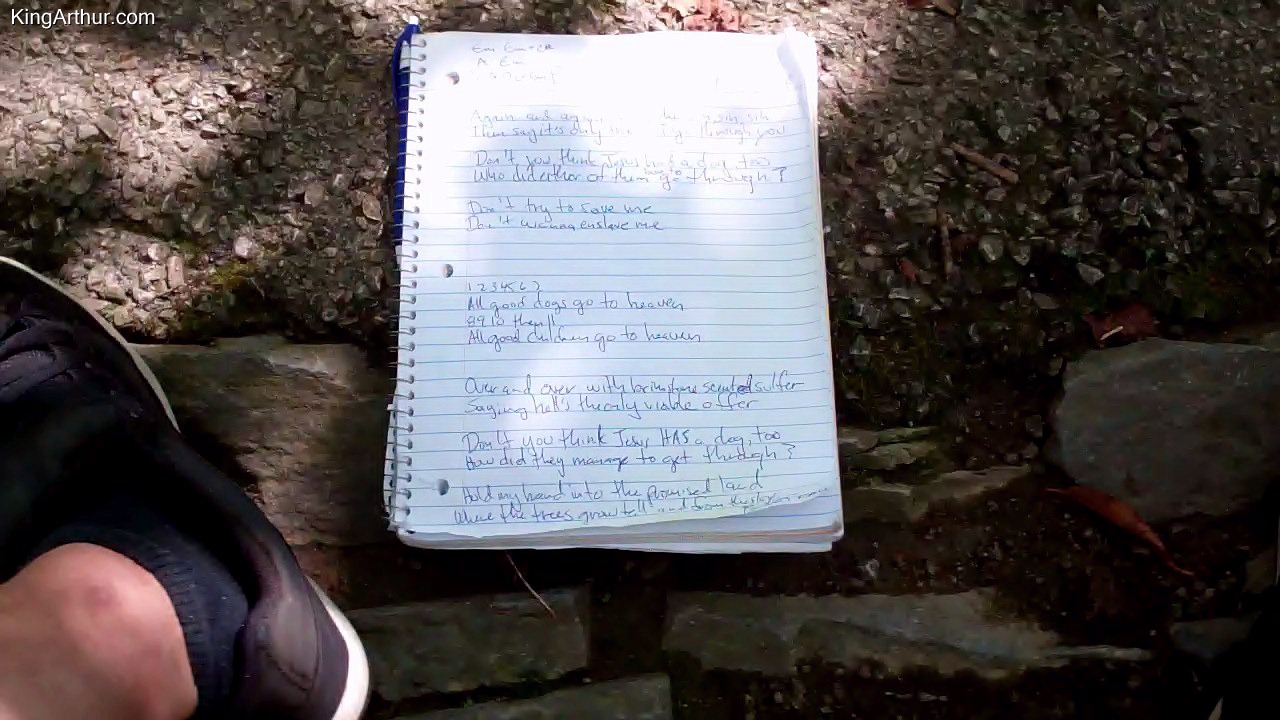 KingArthur.com
A Em
Again and again sin, sin
Then say it's only through you
Don't you think Jesus had a dog, too
Who did either of them have to go through?
Don't try to save me
Don't wanna enslave me
1 2 3 4 5 6 7
All good dogs go to heaven
8 9 10 then
All good children go to heaven
Over and over with brimstone scented sulfer
Saying hell's the only viable offer
Don't you think Jesus HAS a dog, too
How did they manage to get through?
Hold my hand into the promised land
Where the trees grow tall and